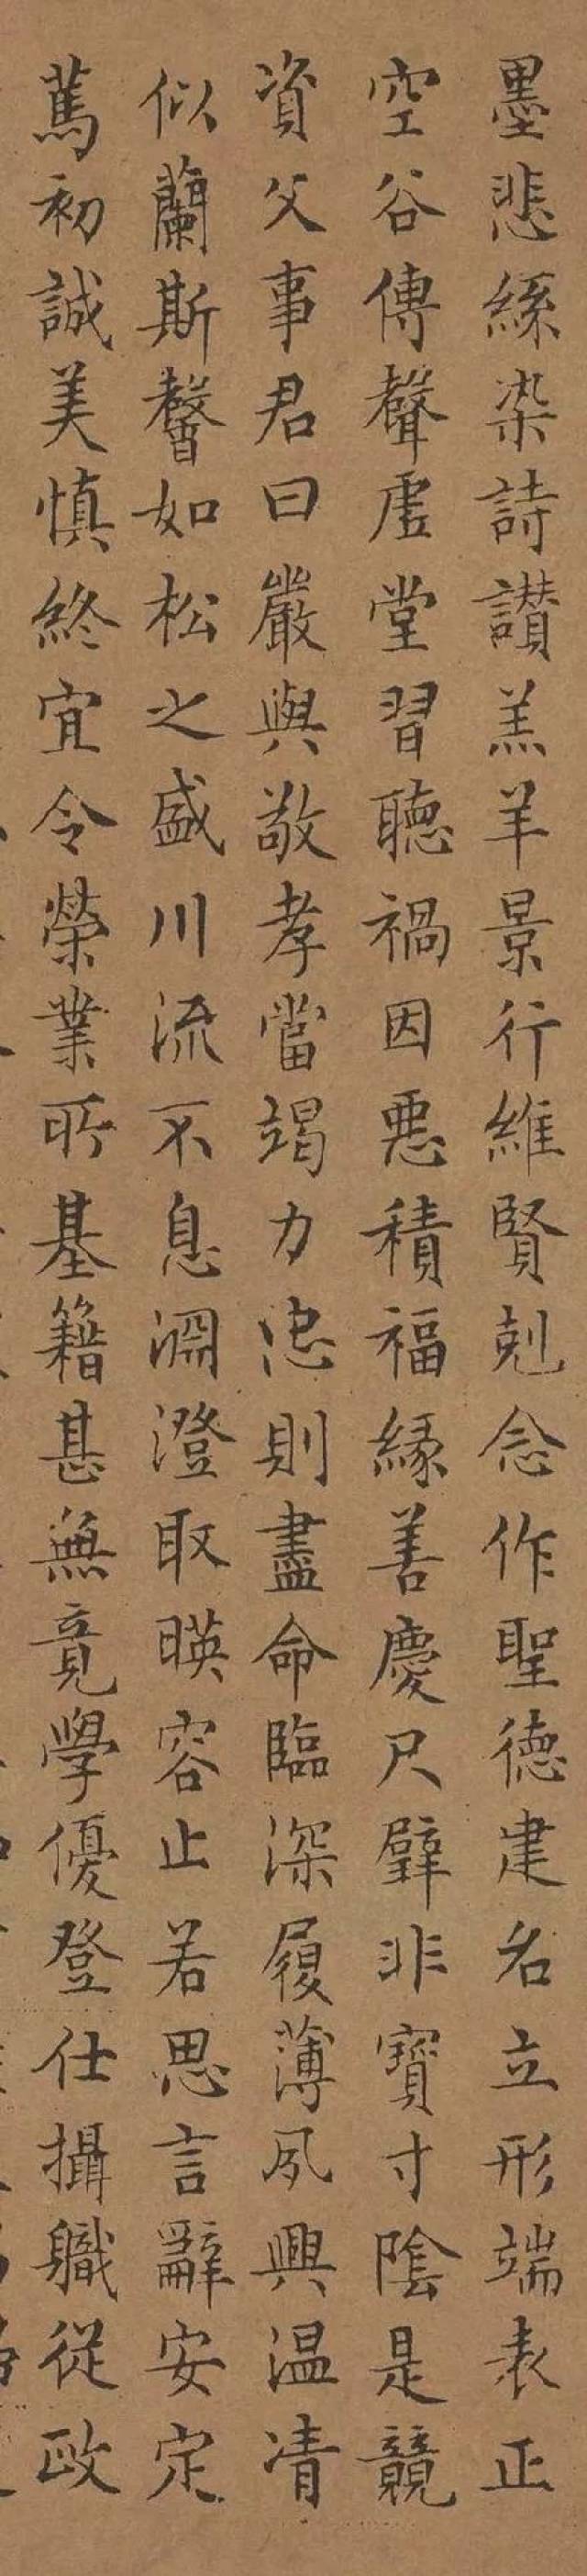 墨悲絲染詩讃羔羊景行維賢剋念作聖德建名立形端表正
空谷傳聲虛堂習聽禍因惡積福緣善慶尺璧非寶寸陰是競
資父事君曰嚴與敬孝當竭力忠則盡命臨深履薄夙興温凊
似蘭斯馨如松之盛川流不息淵澄取暎容止若思言辭安定
篤初誠美慎終宜令榮業所基籍甚無竟學優登仕攝職從政